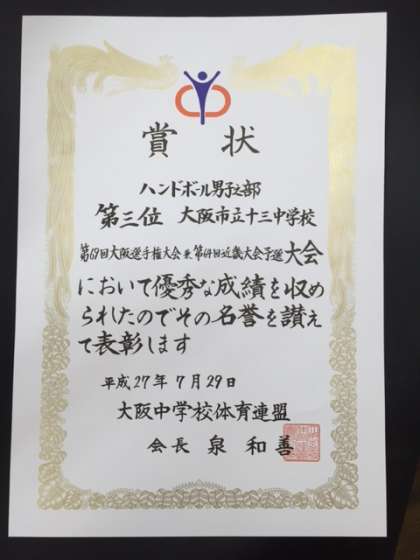 賞状
ハンドボール男子之部
第三位 大阪市立十三中学校
第69回大阪選手権大会兼第64回近畿大会予選大会
において優秀な成績を収め
られたのでその名誉を讃え
て表彰します
平成27年7月29日
大阪中学校体育連盟
会長 泉 和善